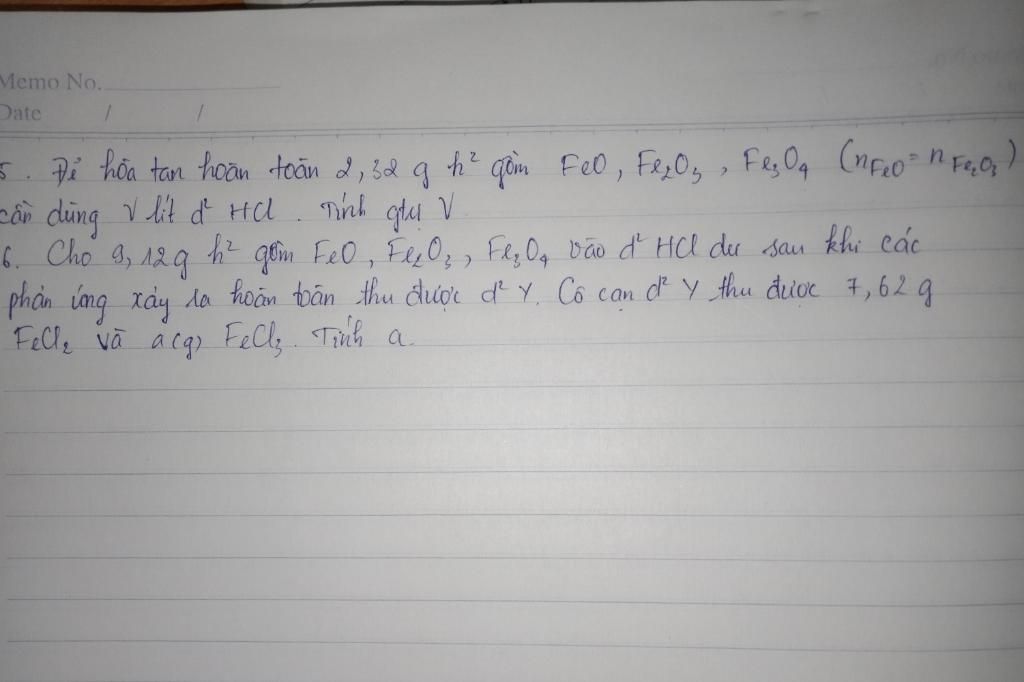 Memo No.
Date / /
5. Để hòa tan hoàn toàn 2,32 g h² gồm FeO, Fe₂O₃, Fe₃O₄ (nFeO = nFe₂O₃)
cần dùng V lít d² HCl. Tính gtrị V
6. Cho 9,12g h² gồm FeO, Fe₂O₃, Fe₃O₄ vào d² HCl dư sau khi các
phản ứng xảy ra hoàn toàn thu được d² Y. Cô cạn d² Y thu được 7,62 g
FeCl₂ và a(g) FeCl₃. Tính a.